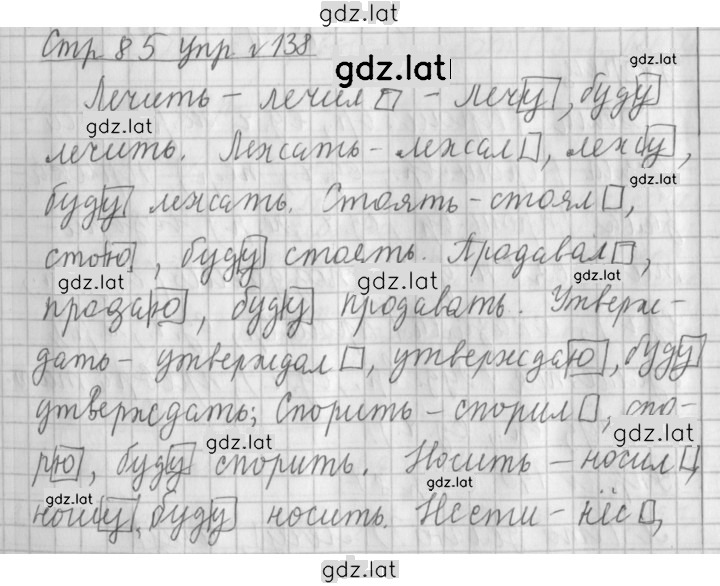 gdz.lat
Стр 85 упр №138
gdz.lat
gdz.lat
Лечить – лечил□ – лечу, буду
gdz.lat
лечить. Лежать – лежал□, лежу,
gdz.lat
буду лежать. Стоять – стоял□,
стою, буду стоять. Продавал□,
gdz.lat gdz.lat gdz.lat
продаю, буду продавать. Утверж-
дать – утверждал□, утверждаю, буду
утверждать; Спорить – спорил□, спо-
gdz.lat gdz.lat
рю, буду спорить. Носить – носил□,
gdz.lat gdz.lat
ношу, буду носить. Нести – нёс□,
gdz.lat